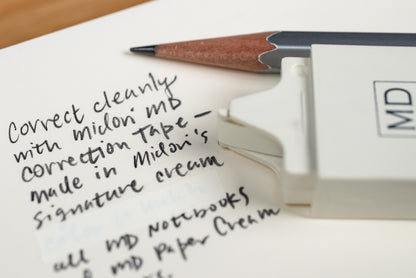 Correct cleanly
with midori MD
correction tape –
made in Midori's
signature cream
all MD Notebooks
MD Paper Cream
MD